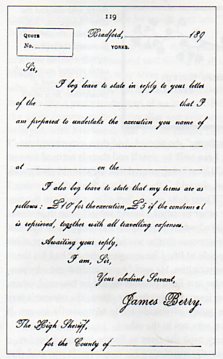 119
QUOTE
No.
Bradford, 189
YORKS.
Sir,
I beg leave to state in reply to your letter
of the that I
am prepared to undertake the execution you name of
at on the
I also beg leave to state that my terms are as
follows: £10 for the execution, £5 if the condemned
is reprieved, together with all travelling expenses.
Awaiting your reply,
I am, Sir,
Your obedient Servant,
James Berry.
The High Sheriff,
for the County of